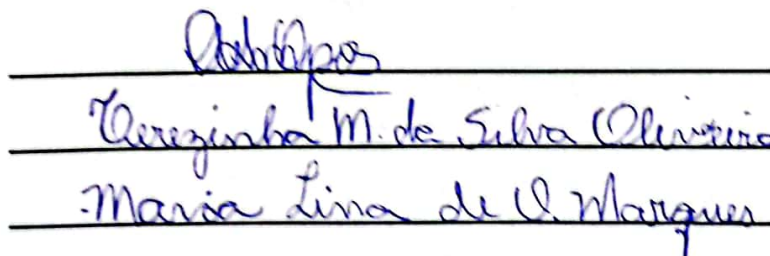 Terezinha M. da Silva Oliveira
Maria Lina de O. Marques